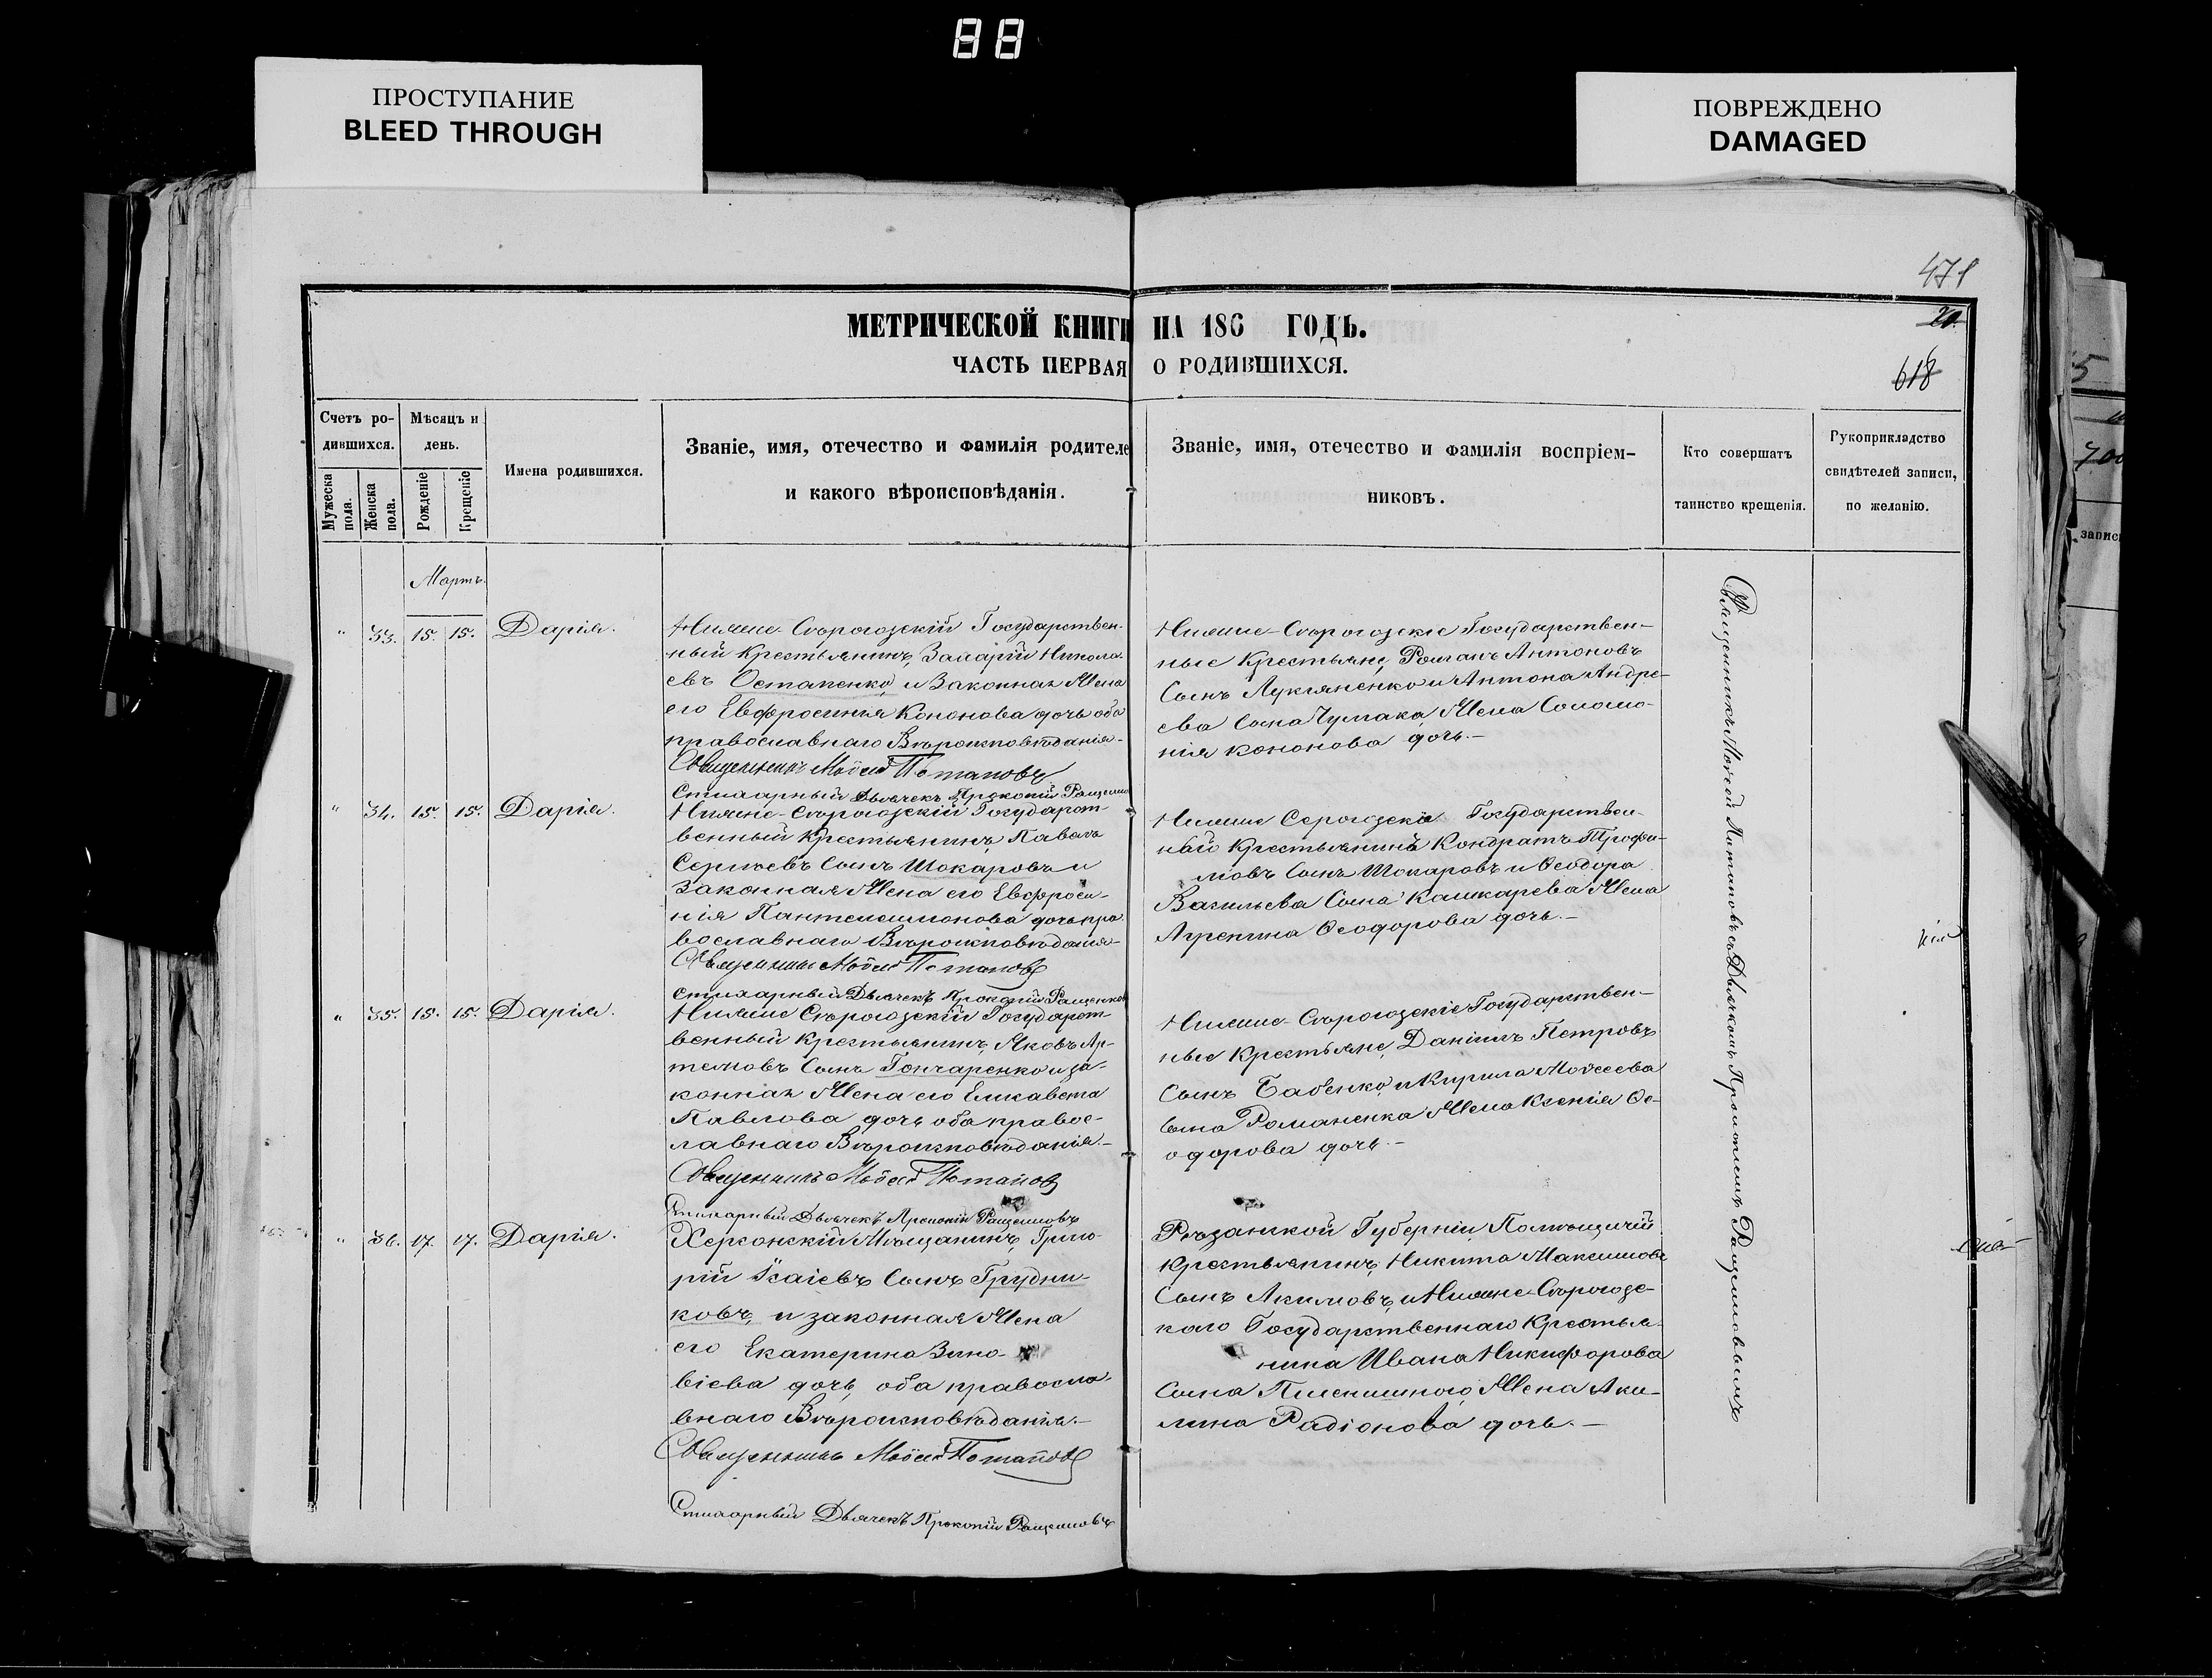 88
ПРОСТУПАНИЕ
BLEED THROUGH
ПОВРЕЖДЕНО
DAMAGED
471
МЕТРИЧЕСКОЙ КНИГИ НА 186 ГОДЪ.
20.
ЧАСТЬ ПЕРВАЯ О РОДИВШИХСЯ.
618
Счетъ ро-
дившихся.
Мужеска
пола.
Женска
пола.
Мѣсяцъ и
день.
Рожденіе
Крещеніе
Имена родившихся.
Званіе, имя, отечество и фамилія родителе
и какого вѣроисповѣданія.
Званіе, имя, отечество и фамилія воспріем-
никовъ.
Кто совершатъ
таинство крещенія.
Рукоприкладство
свидѣтелей записи,
по желанію.
Мартъ.
" 33. 15. 15. Дарія.
Нижне-Сѣрогозскій Государствен-
ный Крестьянинъ, Никола-
евъ Остапенко, и Законная Жена
его Евфросинія Кононова дочь оба
православнаго Вѣроисповѣданія.-
Священникъ Моѵсей Потаповъ
Стихарный Дьячекъ Прокопій
Нижне-Сѣрогозскіе Государствен-
ные Крестьяне, Романъ Антоновъ
Сынъ Лукяненко и Антона Андре-
ева Сына Чумака, Жена Соломо-
нія Кононова дочь.-
" 34. 15. 15. Дарія.
Нижне-Сѣрогозскій Государст-
венный Крестьянинъ, Павелъ
Сергѣевъ Сынъ Шокаровъ и
Законная Жена его Евфроси-
нія Пантелеимонова дочь пра
вославнаго Вѣроисповѣданія-
Священникъ Моѵсей Потаповъ
Стихарный Дьячекъ Прокопій
Нижне Серогозскіе Государствен-
ный Крестьянинъ Кондратъ Трофи-
мовъ Сынъ Шокаровъ и Ѳеодора
Васильева Сына Кашкарева Жена
Агрепина Ѳеодорова дочь.-
" 35. 15. 15. Дарія.
Нижне Сѣрогозскій Государст-
венный Крестьянинъ, Яковъ Ар-
темовъ Сынъ Гончаренко и за-
конная Жена его Елисавета
Павлова дочь оба правос-
лавнаго Вѣроисповѣданія.-
Священникъ Моѵсей Потаповъ
Стихарный Дьячекъ Прокопій
Нижне-Сѣрогозскіе Государствен-
ные Крестьяне, Даніилъ Петровъ
Сынъ Бабенко, и Кирила Моѵсеева
Сына Романенка Жена Ксенія Ѳе-
одорова дочь.-
" 36. 17. 17. Дарія.
Херсонскій Мѣщанинъ, Григо-
рій Исаіевъ Сынъ Грудни-
ковъ, и законная Жена
его Екатерина Зино-
віева дочь, оба правосла-
внаго Вѣроисповѣданія.-
Священникъ Моѵсей Потаповъ
Стихарный Дьячекъ Прокопій
Рѣзанской Губерніи,
Крестьянинъ, Никита Максимовъ
Сынъ Акимовъ, и Нижне-Сѣрогозс-
каго Государственнаго Крестья-
нина Ивана Никифорова
Сына Пшенишного, Жена Аку-
лина Радіонова дочь.-
Священникъ Моѵсей Потаповъ съ Дьячкомъ Прокопіемъ